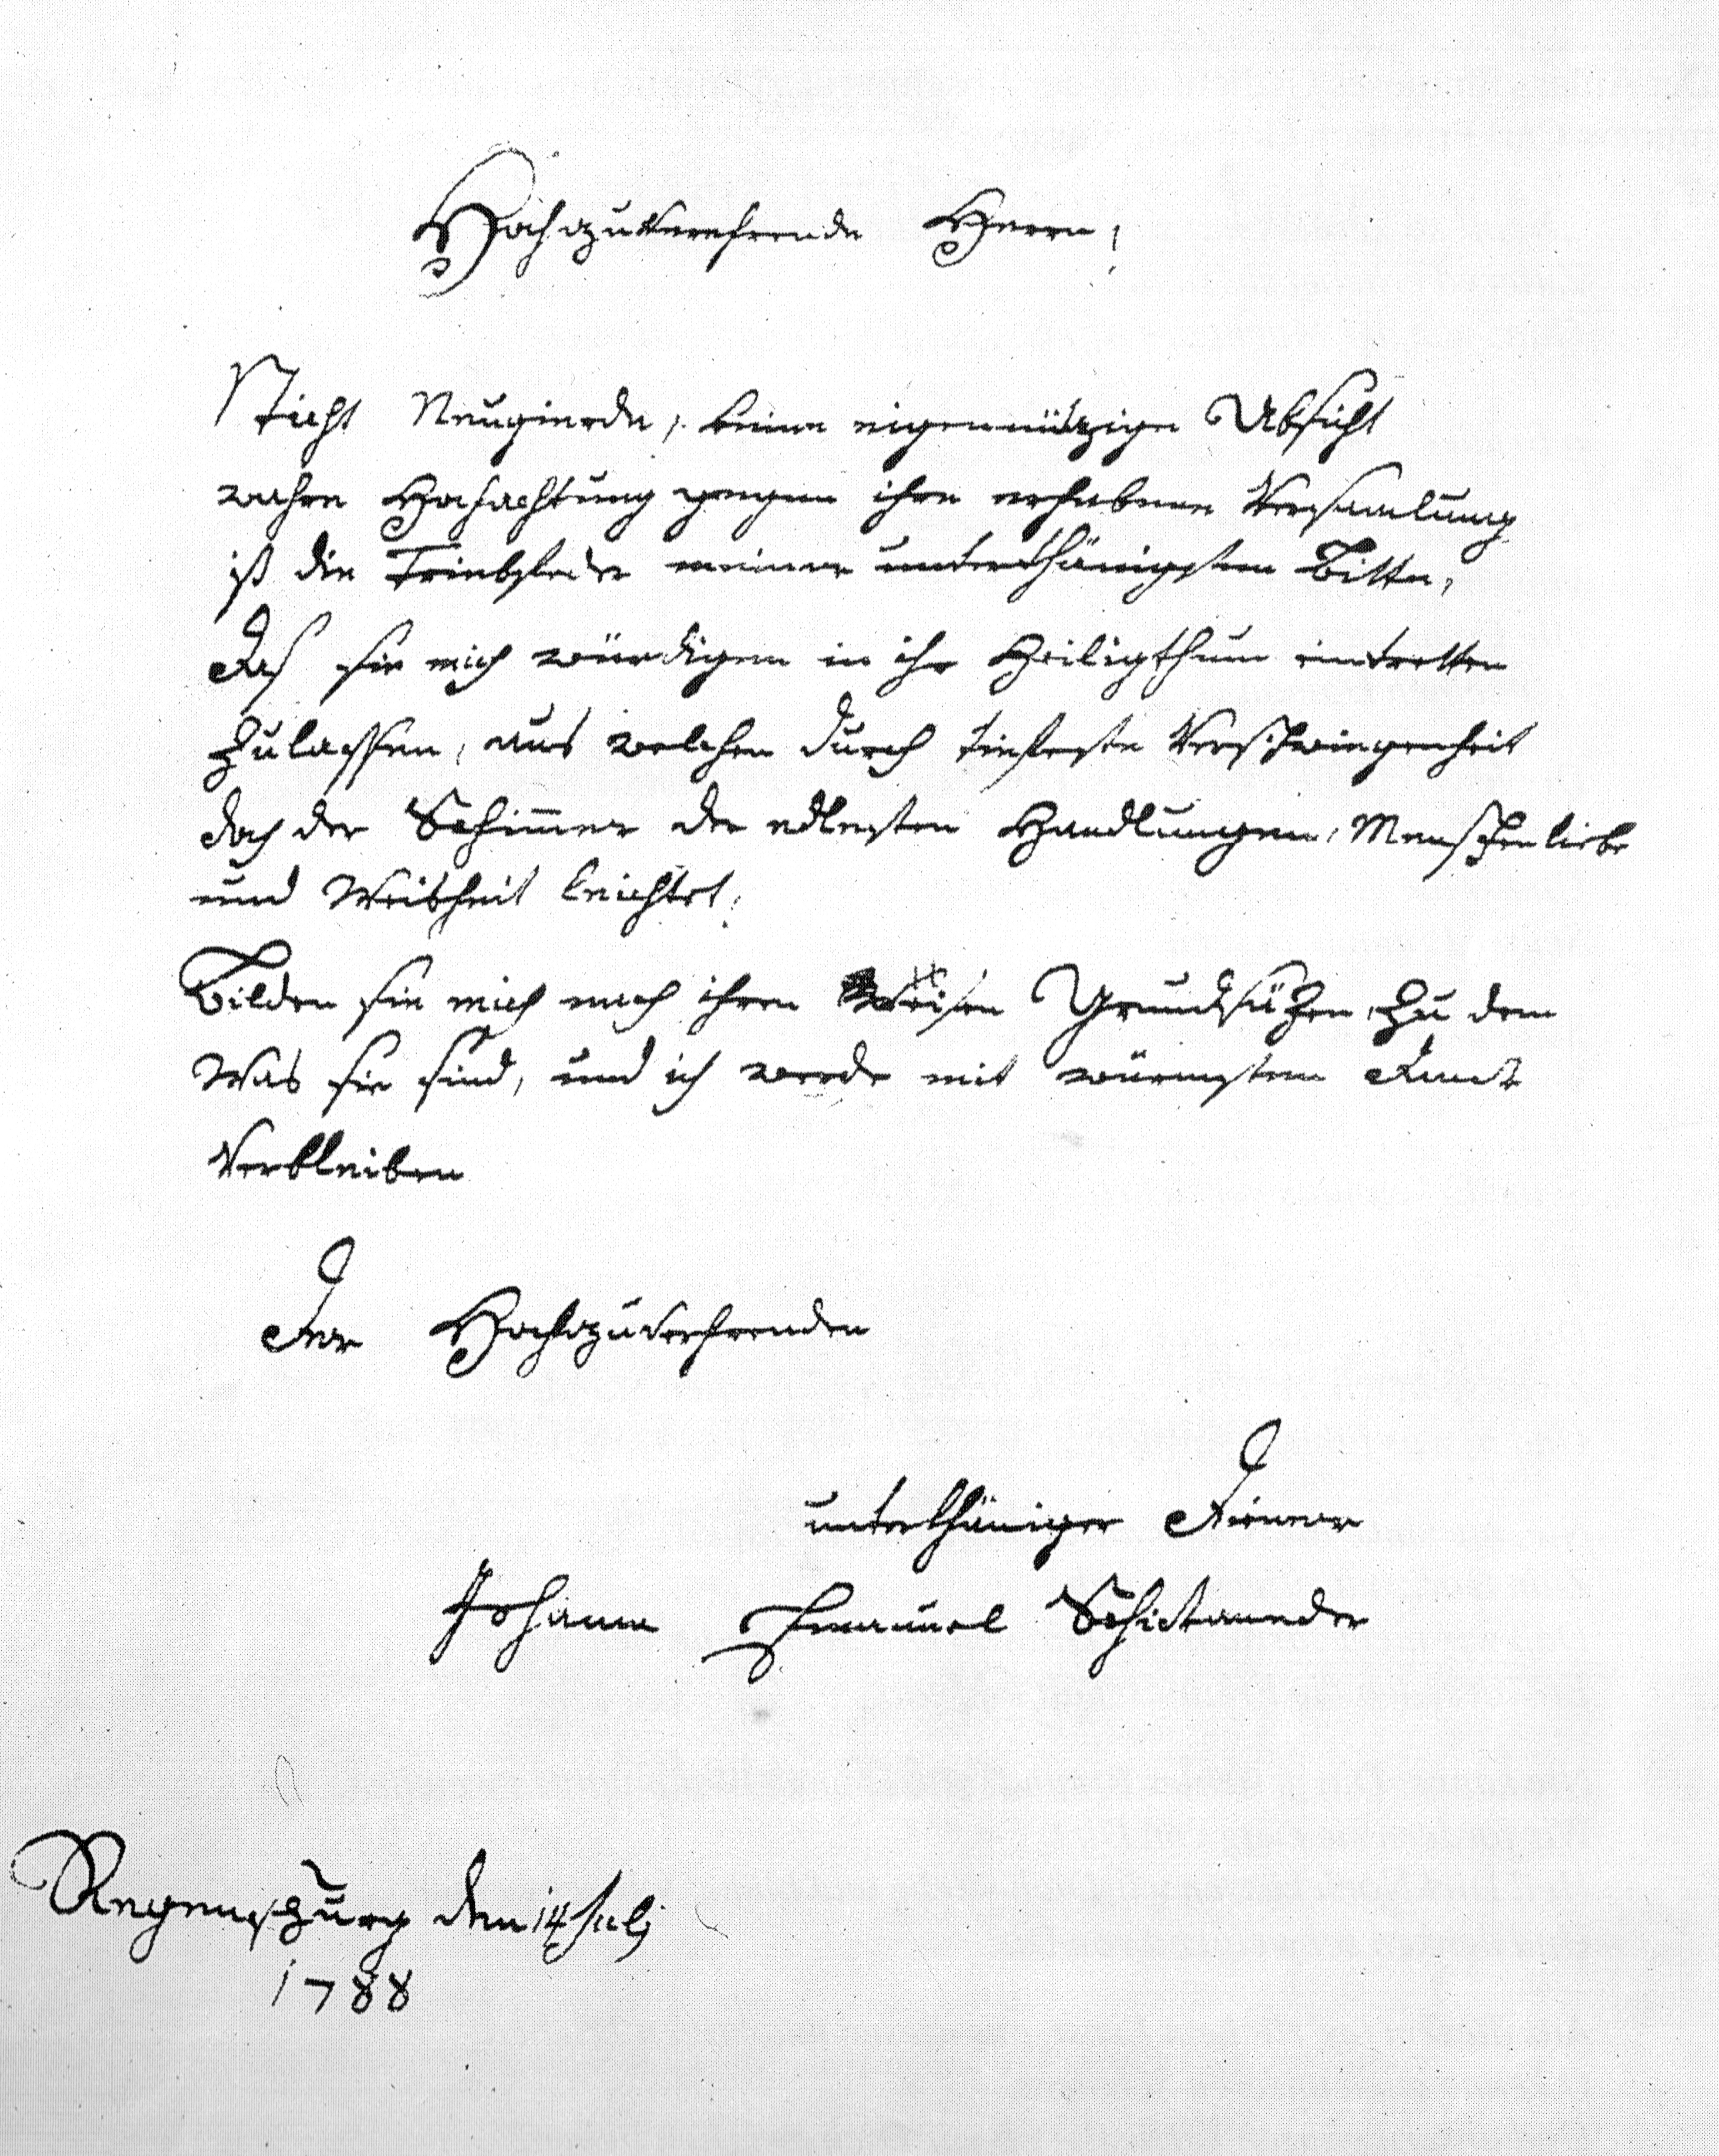 Hochzuverehrende Herrn!
Nicht Neugierde, keine eigennützige Absicht
wahre Hochachtung gegen ihre erhabene Versamlung
ist die Triebfeder meiner unterthänigsten Bitte,
Daß sie mich würdigen in ihr Heiligthum eintretten
zulassen, aus welchen durch tiefeste Verschwiegenheit
doch der Schim̅er der edlesten Handlungen, Menschenliebe
und Weisheit leichtet.
Bilden sie mich nach ihren Weisen Grundsäzen, zu dem
Was sie sind, und ich werde mit wärmsten Dank
Verbleiben
Der Hochzuverehrenden
unterthäniger Diener
Johann Emanuel Schickaneder
Regenspurg den 14 Julj
1788